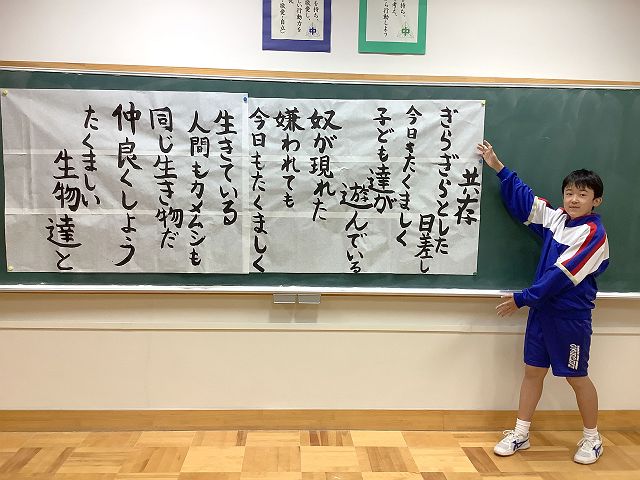 共存
ぎらぎらとした日差し
今日もたくましく
子ども達が遊んでいる
奴が現れた
嫌われても
今日もたくましく
生きている
人間もカメムシも
同じ生き物だ
仲良くしよう
たくましい生物達と